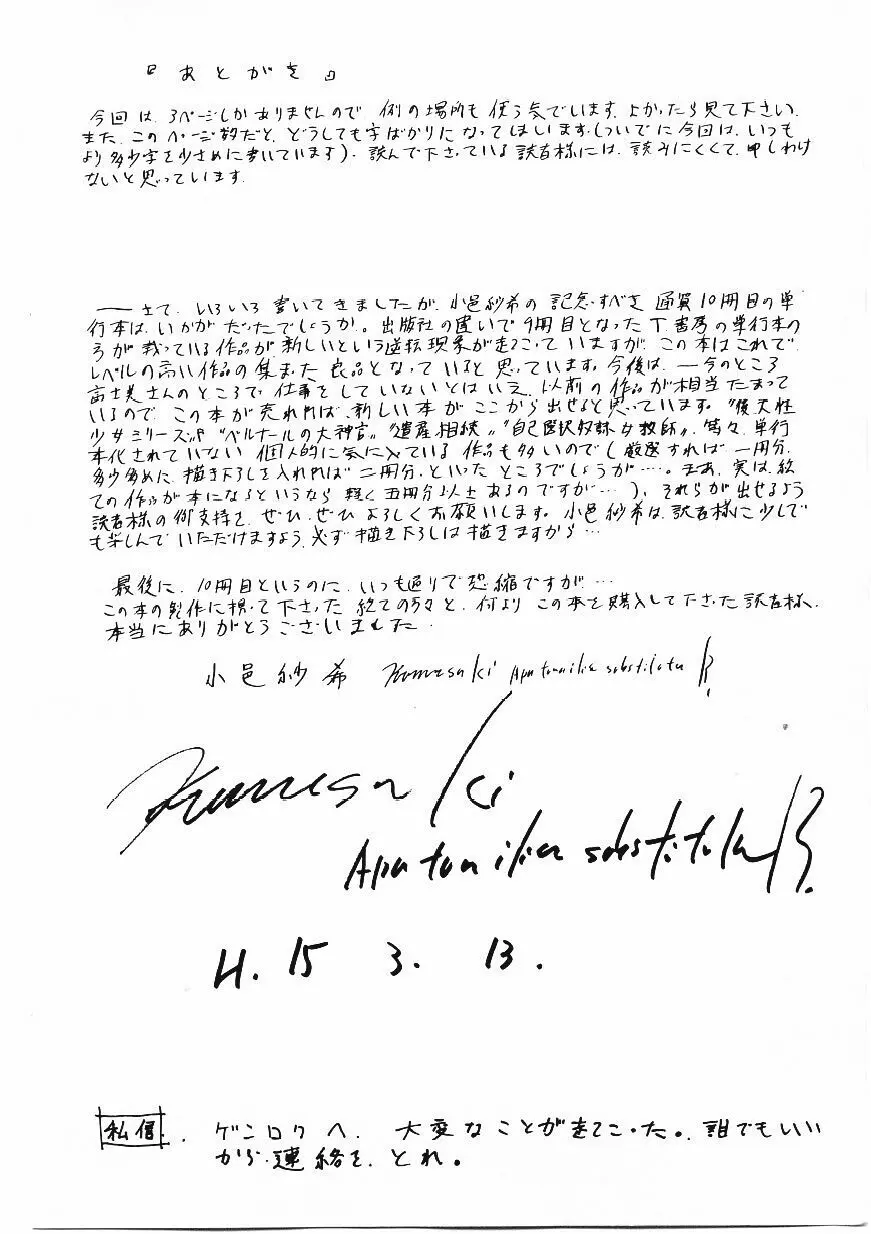 『あとがき』
今回は、3ページしかありませんので、例の場所も使う気でいます。よかったら見て下さい。
また、このページ数だと、どうしても字ばかりになってしまいます(ついでに今回は、いつも
より多少字を少さめに書いています)。読んで下さっている読者様には、読みにくくて、申しわけ
ないと思っています。
――さて、いろいろ書いてきましたが、小邑紗希の記念すべき通算10冊目の単
行本は、いかがだったでしょうか。出版社の違いで9冊目となったT書房の単行本の
方が載っている作品が新しいという逆転現象が起こっていますが、この本はこれで、
レベルの高い作品の集まった良品となっていると思っています。今後は、――今のところ
富士美さんのところで仕事をしていないとはいえ、以前の作品が相当たまって
いるので、この本が売れれば、新しい本がここから出せると思っています。"後天性
少女シリーズ" "ベルナールの大神官" "遺産相続" "自己選択奴隷女教師"、等々、単行
本化されていない個人的に気に入っている作品も多いのでし(厳選すれば一冊分、
多少多めに、描き下ろしを入れれば二冊分、といったところでしょうが…。まあ、実は、総
ての作品が本になるというなら軽く五冊分以上あるのですが…)、それらが出せるよう
読者様の御支持を、ぜひ、ぜひよろしくお願いします。小邑紗希は、読者様に少しで
も楽しんでいただけますよう、必ず描き下ろしは描きますから…
最後に、10冊目というのに、いつも通りで恐縮ですが…
この本の製作に携って下さった総ての方々と、何よりこの本を購入して下さった読者様、
本当にありがとうございました。
小邑紗希 Kumasaki Apatanilia substituta R?
Kumasaki
Apatanilia substituta R?
H. 15 3. 13.
私信. ゲンロクへ、大変なことが起こった。誰でもいい
から連絡を、とれ。